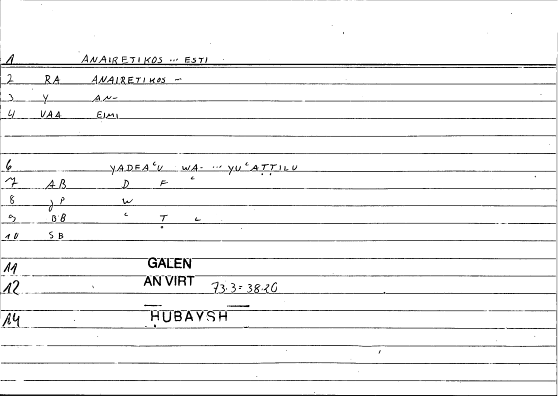 1 ANAIRETIKOS ... ESTI
2 RA ANAIRETIKOS –
3 Y AN–
4 VAA EIMI
6 YADFAʿU WA- ... YUʿAṬṬILU
7 AB D F ʿ
8 JP W
9 BB ʿ Ṭ L
10 SB
11 GALEN
12 AN VIRT 73.3 = 38.20
14 ḤUBAYSH